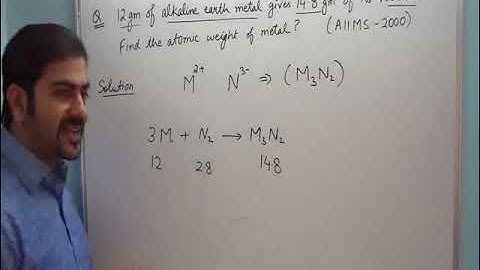 Q 12 gm of alkaline earth metal gives 14.8 gm of its
Find the atomic weight of metal? (AIIMS-2000)
Solution M²⁺ N³⁻ ⇒ (M₃N₂)
3M + N₂ → M₃N₂
12 2.8 14.8